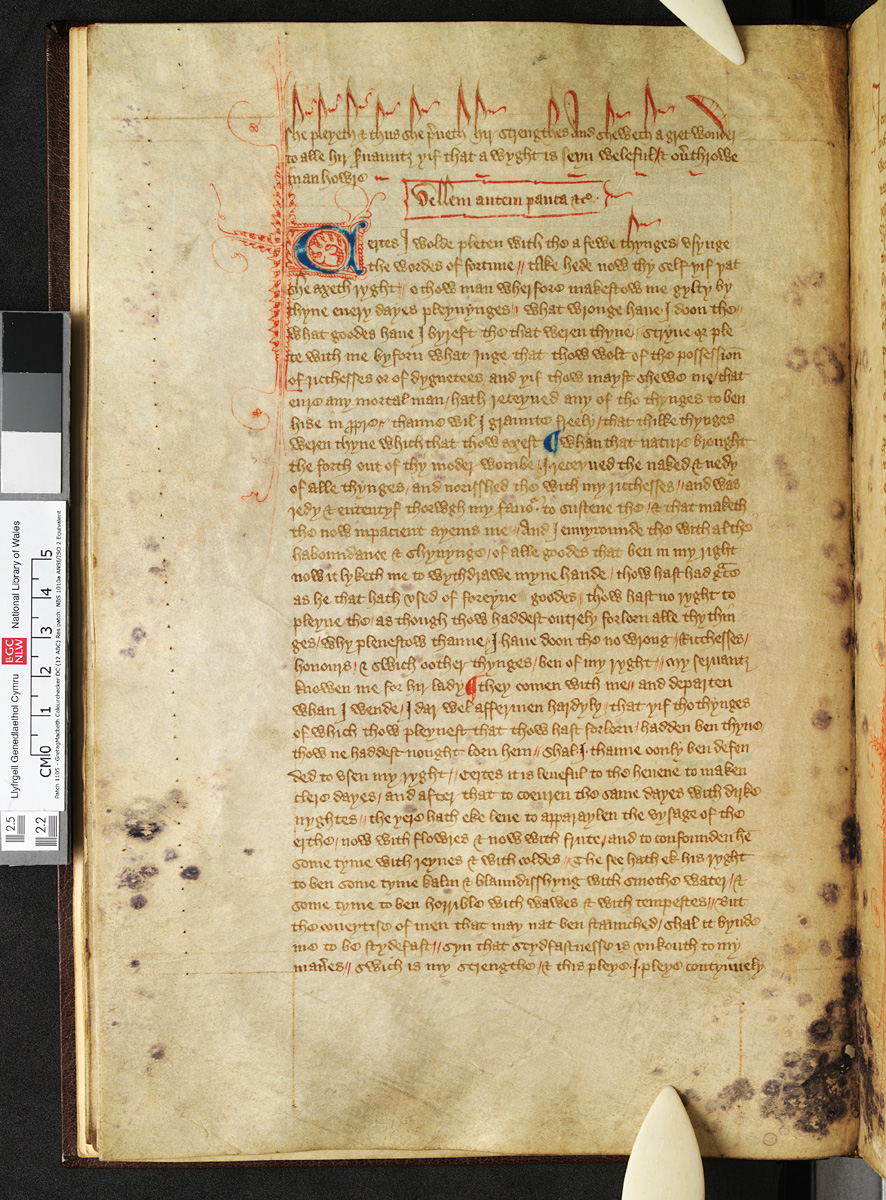 she pleyeth & thus she p̄ueth hir strengthes And sheweth a gret wonder
to alle hir s̄uauntz yif that a wyght is seyn weleful / & ou̅throwe
in an howre
Uellem autem pauca &c̄
Certes I wolde pleten with the a fewe thynges / vsynge
the wordes of fortune // take hede now thy self yif þat
she axeth ryght // o thow man wherfore makestow me gylty by
thyne euery dayes pleynynges // what wronge haue I doon the //
what goodes haue I byreft the that weren thyne / stryue or ple
te with me byforn what iuge that thow wolt of the possession
of ricchesses or of dygnetees and yif thow mayst shewe me / that
eu̅e any mortal man / hath receyued any of tho thynges to ben
hise in ꝓpre / thanne wil I graunte freely / that thilke thynges
weren thyne which that thow axest ¶ whan that nature brought
the forth out of thy moder wombe / I receyued the naked & nedy
of alle thynges / and norisshed the with my ricchesses // and was
redy & ententyf thorwgh my fauo͛ to sustene the / & that maketh
the now inpacient ayeins me / And I enuyrounde the with al the
haboundance & shynynge / of alle goodes that ben in my right
now it lyketh me to wythdrawe myne hande / thow hast had gr̄ce
as he that hath vsed of foreyne goodes / thow hast no ryght to
pleyne the / as though thow haddest outrely forlorn alle thy thin-
ges / why pleynestow thanne / I haue doon the no wrong / Ricchesses /
honours / & swich oother thynges / ben of my ryght // My seruantz
knowen me for hir lady ¶ they comen with me // and departen
whan I wende / I dar wel affermen hardyly / that yif tho thynges
of which thow pleynest that thow hast forlorn / hadden ben thyne
thow ne haddest nought lorn hem // shal .I. thanne oonly ben defen
ded to vsen my ryght // Certes it is leueful to the heuene to maken
clere dayes / and after that to coeuren the same dayes with dirke
nyghtes // the yere hath eke leue to apparaylen the vysage of the
erthe / now with flowres & now with frute / and to confounden hē
some tyme with reynes & with coldes // The see hath ek his ryght
to ben some tyme kalm & blaundisshyng with smothe water / &
some tyme to ben horrible with wawes & with tempestes // But
the coueytise of men that may nat ben staunched / shal it bynde
me to be stydefast / syn that stydfastnesse is vnkouth to my
man̄es // swich is my strengthe / & this pleye .I. pleye contynuely
CM 0 1 2 3 4 5
Llyfrgell Genedlaethol Cymru
LLGC
NLW
National Library of Wales
2.5
2.2